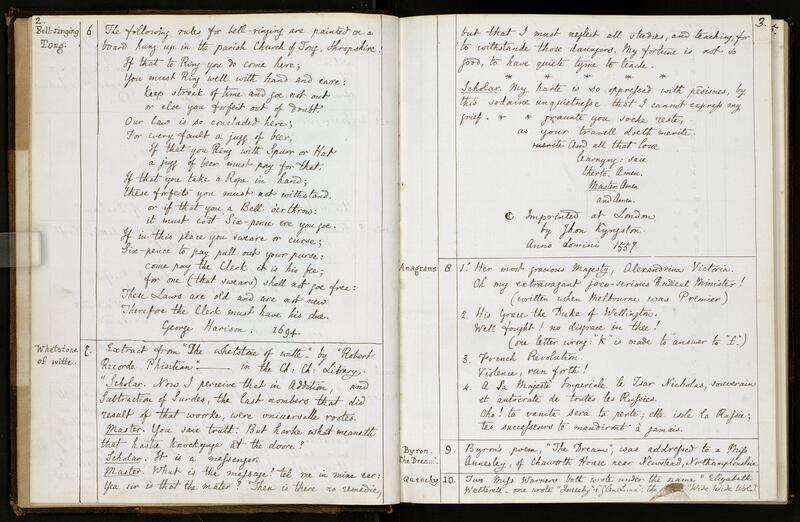 2.
Bell-ringing
Tong.
6
The following rules for bell-ringing are painted on a
board hung up in the parish Church of Tong, Shropshire:
If that to Ring you do come here;
You must Ring well with hand and eare:
Keep stroak of time and goe not out
or else you forfeit out of doubt.
Our law is so concluded here;
For every fault a jugg of beer,
If that you Ring with Spurr or Hat
a jugg of beer must pay for that.
If that you take a Rope in hand;
These forfeits you must not withstand.
or if that you a Bell o'erthrow:
it must cost Six-pence ere you goe.
If in this place you sweare or curse;
Six-pence to pay pull out your purse:
come pay the Clerk it is his fee;
for one (that swears) shall not goe free:
These Laws are old and are not new
Therefore the Clerk must have his due.
George Harison. 1694.
Whetstone
of witte.
7.
Extract from "The whetstone of witte" by "Robert
Recorde Phisition" in the Ch: Ch: Library.
"Scholar. Now I perceive that in Addition, and
Subtraction of Surdes, the last nombers that did
result of that woorke, were universalle rootes.
Master. You saie truth. But harke what meaneth
that hastie knockyng at the doore?
Scholar. It is a messenger.
Master. What is the message? tel me in mine ear:
Yea sir is that the mater? Then is there no remedie,
3.
but that I must neglect all studies, and teaching, for
to withstande those daungers. My fortune is not so
good, to have quiete tyme to teache.
* * * * *
Scholar. My harte is so oppressed with pesisnes, by
this sodaine unquietnesse that I cannot express my
grief. * * graunte you soche reste,
as your travell doeth merite.
merite And all that love
learnyng: saie
therto. Amen.
Master Amen
and Amen.
Imprinted at London
by Jhon Kyngston.
Anno domini 1557.
Anagrams
8
1. Her most gracious Majesty, Alexandrina Victoria.
Oh my extravagant joco-serious Radical Minister!
(written when Melbourne was Premier)
2. His Grace the Duke of Wellington.
Well fought! no disgrace in thee!
(one letter wrong: "K" is made to answer to "f.")
3. French Revolution.
Violence, run forth!
4. A Sa Majesté Impériale le Tsar Nicholas, souverain
et autocrate de toutes les Russies.
Oho! ta vanité sera ta perte; elle isole la Russie;
tes successeurs te maudiront à jamais.
Byron.
"The Dream".
9.
Byron's poem, "The Dream", was addressed to a Miss
Annesley, of Chaworth House near Newstead, Northamptonshire.
Queechy
10.
Two Miss Warners both wrote under the name "Elizabeth
Wetherell - one wrote "Queechy" the "Wide Wide World."